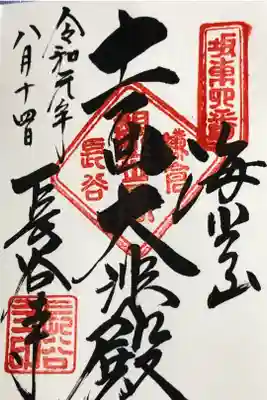 坂東四番
海光山
十一面大悲殿
鎌倉
長谷
令和元年
八月十四日
長谷寺